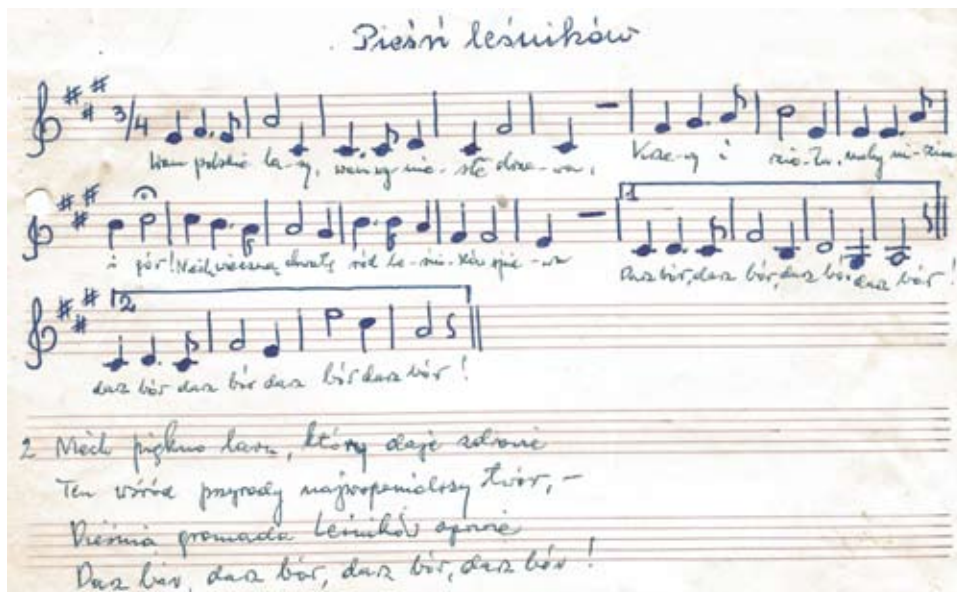 Pieśń leśników
3/4
polskie la-sy, wa-sze drze-wa,
i
i gór! Niech wieczną chwałę ród le-śni-ków śpie-wa
1
Darz bór, darz bór, darz bór, darz bór!
2
darz bór darz bór darz bór darz bór!
2 Niech piękno lasu, który daje zdrowie
Ten wśród przyrody najwspanialszy twór, –
Pieśnią gromada leśników opowie
Darz bór, darz bór, darz bór, darz bór!